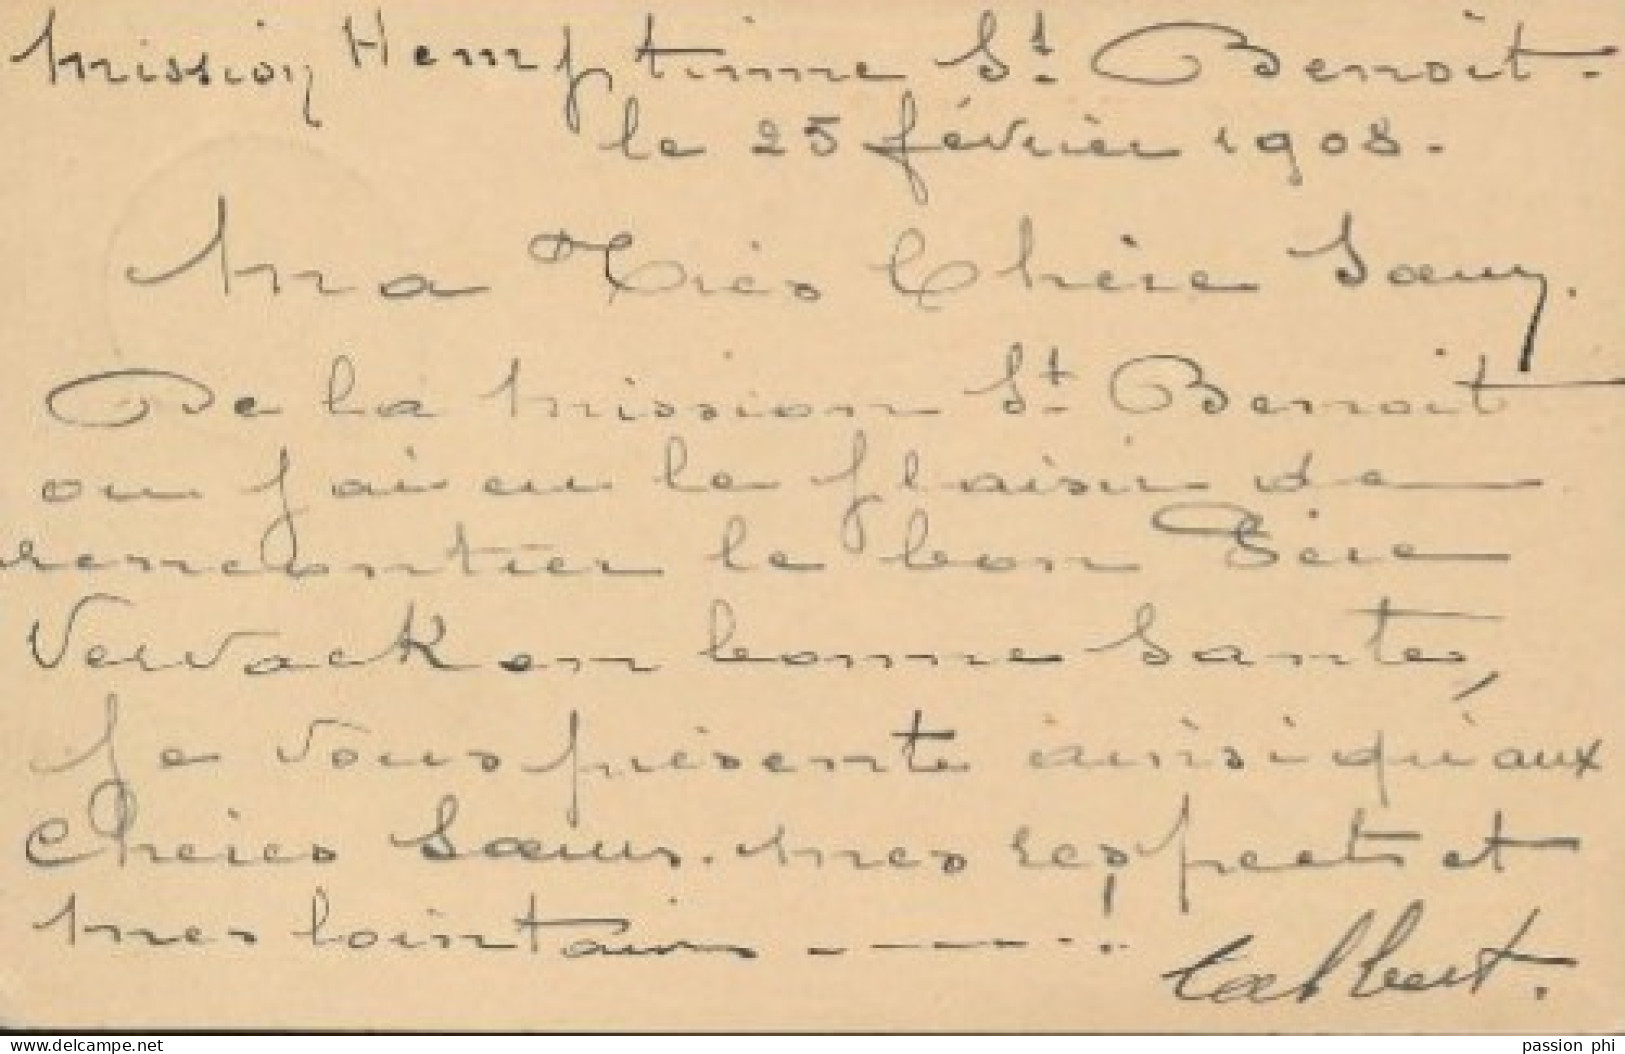 Mission Hemptinne St. Benoit.
le 25 février 1908.
Ma Très Chère Sœur.
De la Mission St. Benoit
ou j'ai eu le plaisir de
rencontrer le bon Père
Vervack en bonne Santé,
Je vous présente ainsi qu'aux
Chères Sœurs. mes respects et
mes lointains
www.delcampe.net
passion phi